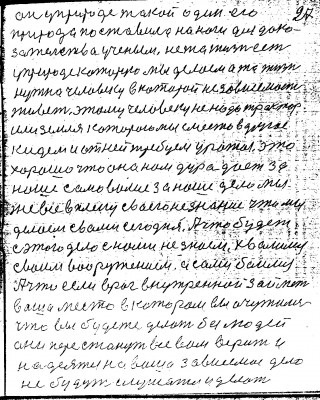 он у природе такой один его 27
природа поставила на ноги для дока-
зательства ученым, не та жизнь есть
у природе которую мы делаем а та жизнь
нужна человеку в которой независимость
живет, этому человеку не надо трактор
или земля которую мы с места в другое
кидаем и от ней требуем урожая, это
хорошо что она нам дура дает за
наше самоволие за наше дело мы
не все в
своего незнание что мы
делаем сами сегодня, А что будет
с этого дело с нами не знаем, хвалимся
своим вооружением, а сами боимся
А что если враг внутренной займет
ваша место в котором вы очутились
что вы будете делать бы людей
они перестанут все вам верить и
надеяти на ваша зависимое дело
не будут слушати и делать